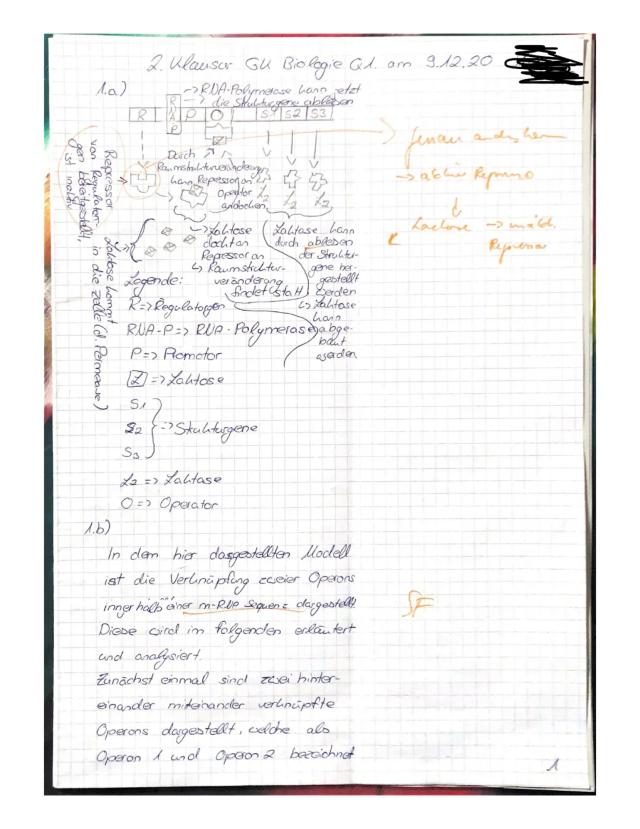 2. Klausur GK Biologie Q1. am 9.12.20
1.a)
-> RNA-Polymerase kann jetzt
-> die Strukturgene ablesen
R RNAP P O S1 S2 S3
Durch
Raumstrukturveränderung
kann Repressor an
Operator
andocken
L2 L2 L2
Repressor
von Regulator-
gen hergestellt,
ist inaktiv
Laktose kommt
in die Zelle (d. Permease)
-> Laktose
dockt an
Repressor an
↳ Raumstruktur-
veränderung
findet statt
Laktase kann
durch ablesen
der Struktur-
gene her-
gestellt
werden
↳ Laktose
kann
abge-
baut
werden
Legende:
R => Regulatorgen
RNA-P => RNA-Polymerase
P => Promotor
L => Laktose
S1
S2 => Strukturgene
S3
L2 => Laktase
O => Operator
genau andersherum
-> aktiver Repressor
Lactose -> inakt.
Repressor
1.b)
In dem hier dargestellten Modell
ist die Verknüpfung zweier Operons
innerhalb einer m-RNA Sequenz dargestellt.
Diese wird im folgenden erläutert
und analysiert.
Zunächst einmal sind zwei hinter-
einander miteinander verknüpfte
Operons dargestellt, welche als
Operon 1 und Operon 2 bezeichnet
SF
1